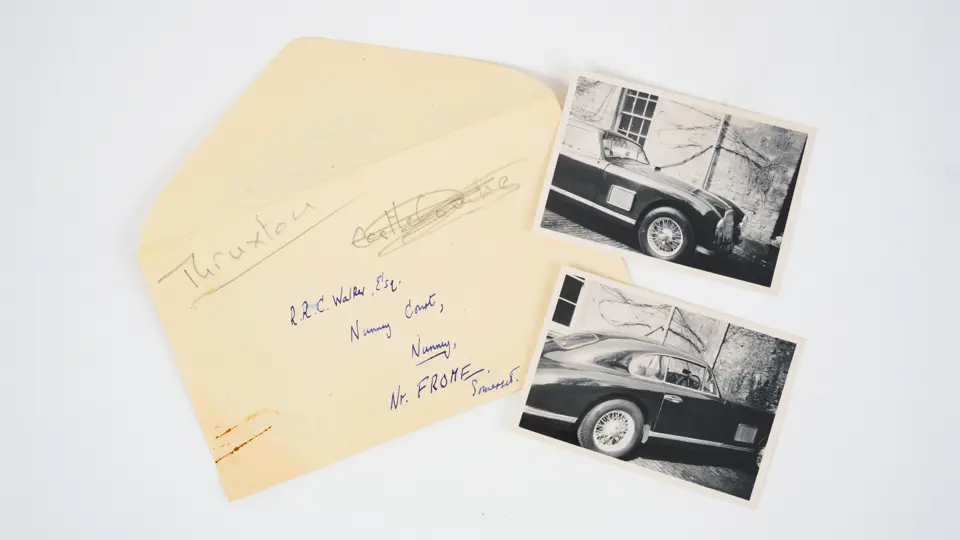 Thruxton
Castle Combe
R.R.C. Walker, Esq.
Nunney Court,
Nunney,
Nr. FROME.
Somerset.